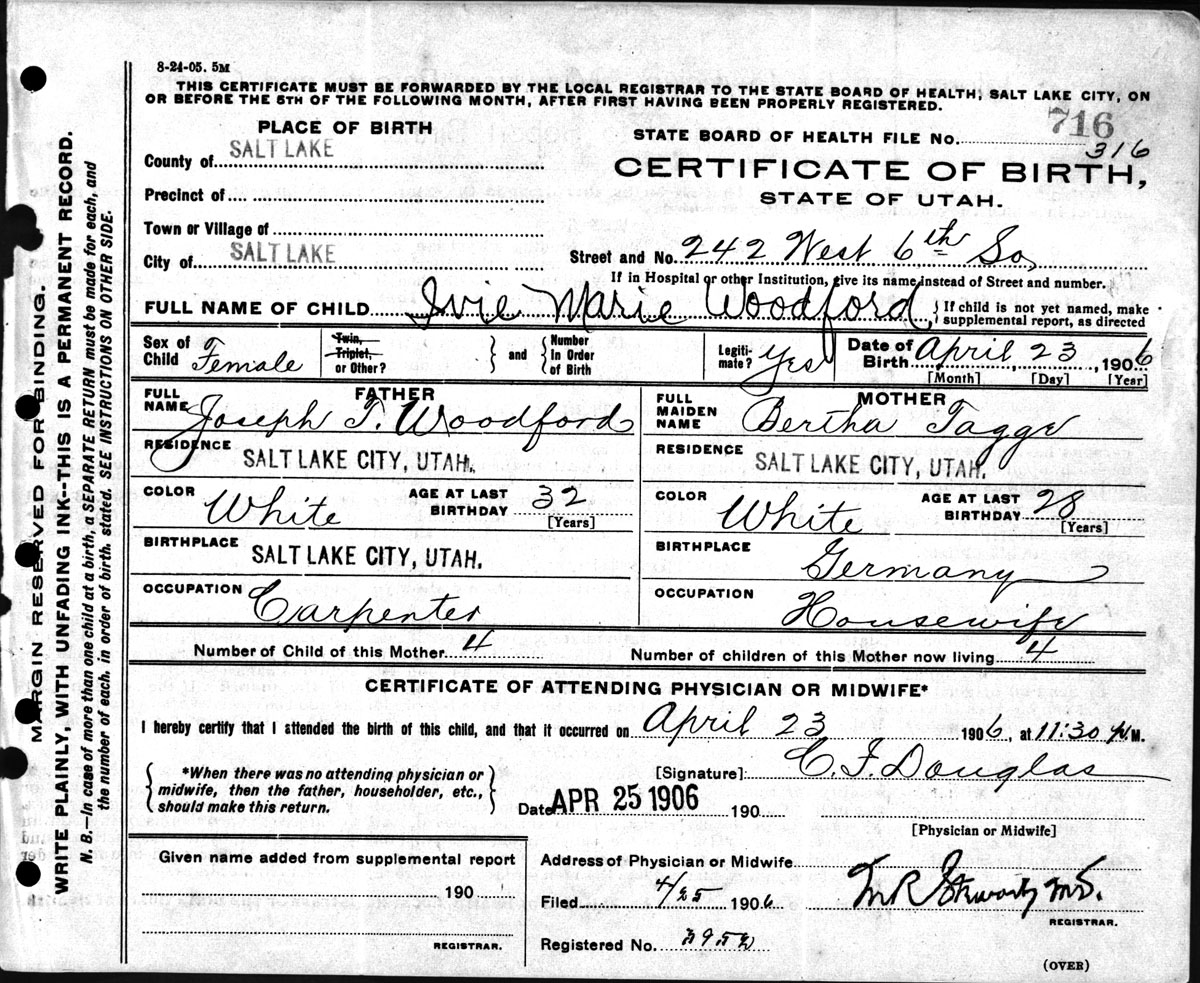 8-24-05. 5M
THIS CERTIFICATE MUST BE FORWARDED BY THE LOCAL REGISTRAR TO THE STATE BOARD OF HEALTH, SALT LAKE CITY, ON
OR BEFORE THE 5TH OF THE FOLLOWING MONTH, AFTER FIRST HAVING BEEN PROPERLY REGISTERED.
PLACE OF BIRTH
County of SALT LAKE
Precinct of
Town or Village of
City of SALT LAKE
STATE BOARD OF HEALTH FILE No. 716
316
CERTIFICATE OF BIRTH,
STATE OF UTAH.
Street and No. 242 West 6th So,
If in Hospital or other Institution, give its name instead of Street and number.
FULL NAME OF CHILD Ivie Marie Woodford
} If child is not yet named, make
supplemental report, as directed
Sex of Child Female
Twin, Triplet, or Other? } and { Number In Order of Birth
Legiti-mate? Yes
Date of Birth April 23, 1906
[Month] [Day] [Year]
FATHER
FULL NAME Joseph T. Woodford
RESIDENCE SALT LAKE CITY, UTAH.
COLOR White AGE AT LAST BIRTHDAY 32
[Years]
BIRTHPLACE SALT LAKE CITY, UTAH.
OCCUPATION Carpenter
MOTHER
FULL MAIDEN NAME Bertha Tagge
RESIDENCE SALT LAKE CITY, UTAH.
COLOR White AGE AT LAST BIRTHDAY 28
[Years]
BIRTHPLACE Germany
OCCUPATION Housewife
Number of Child of this Mother 4 Number of children of this Mother now living 4
CERTIFICATE OF ATTENDING PHYSICIAN OR MIDWIFE*
I hereby certify that I attended the birth of this child, and that it occurred on April 23 1906, at 11:30 M.
{ *When there was no attending physician or
midwife, then the father, householder, etc.,
should make this return. }
[Signature] C. F. Douglas
Date APR 25 1906 190
[Physician or Midwife]
Given name added from supplemental report
190
REGISTRAR.
Address of Physician or Midwife
Filed 4/25 1906
M.D.
REGISTRAR.
Registered No. 3952
(OVER)
MARGIN RESERVED FOR BINDING.
WRITE PLAINLY, WITH UNFADING INK--THIS IS A PERMANENT RECORD.
N. B.—In case of more than one child at a birth, a SEPARATE RETURN must be made for each, and
the number of each, in order of birth, stated. SEE INSTRUCTIONS ON OTHER SIDE.